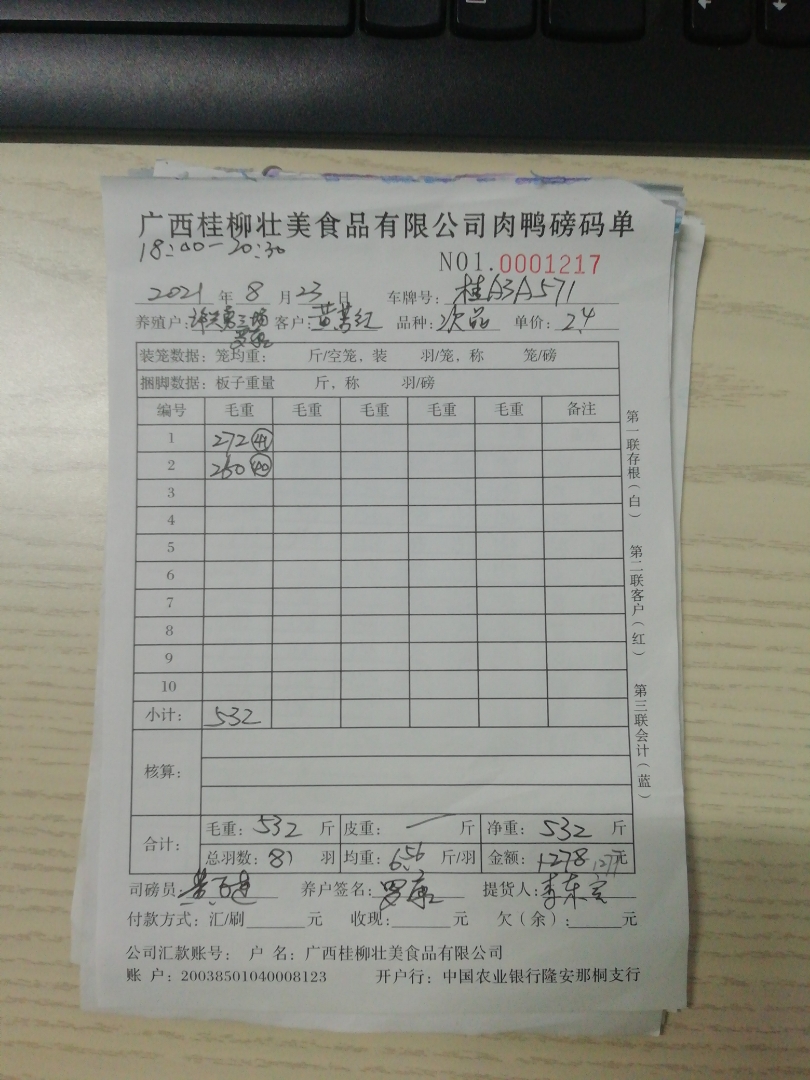 广西桂柳壮美食品有限公司肉鸭磅码单
18:00-20:30
NO1.0001217
2021 年 8 月 23 日 车牌号: 桂A3A571
养殖户: 三场 客户: 黄 红 品种: 次品 单价: 2.4
罗康
装笼数据: 笼均重: 斤/空笼, 装 羽/笼, 称 笼/磅
捆脚数据: 板子重量 斤, 称 羽/磅
编号 毛重 毛重 毛重 毛重 毛重 备注
1 272 41
2 260 40
3
4
5
6
7
8
9
10
小计: 532
核算:
合计: 毛重: 532 斤 皮重: — 斤 净重: 532 斤
总羽数: 81 羽 均重: 6.56 斤/羽 金额: 1278 1277 元
司磅员: 黄 养户签名: 罗康 提货人: 李东
付款方式: 汇/刷 元 收现: 元 欠(余): 元
公司汇款账号: 户 名: 广西桂柳壮美食品有限公司
账 户: 20038501040008123 开户行: 中国农业银行隆安那桐支行
第一联存根(白)
第二联客户(红)
第三联会计(蓝)